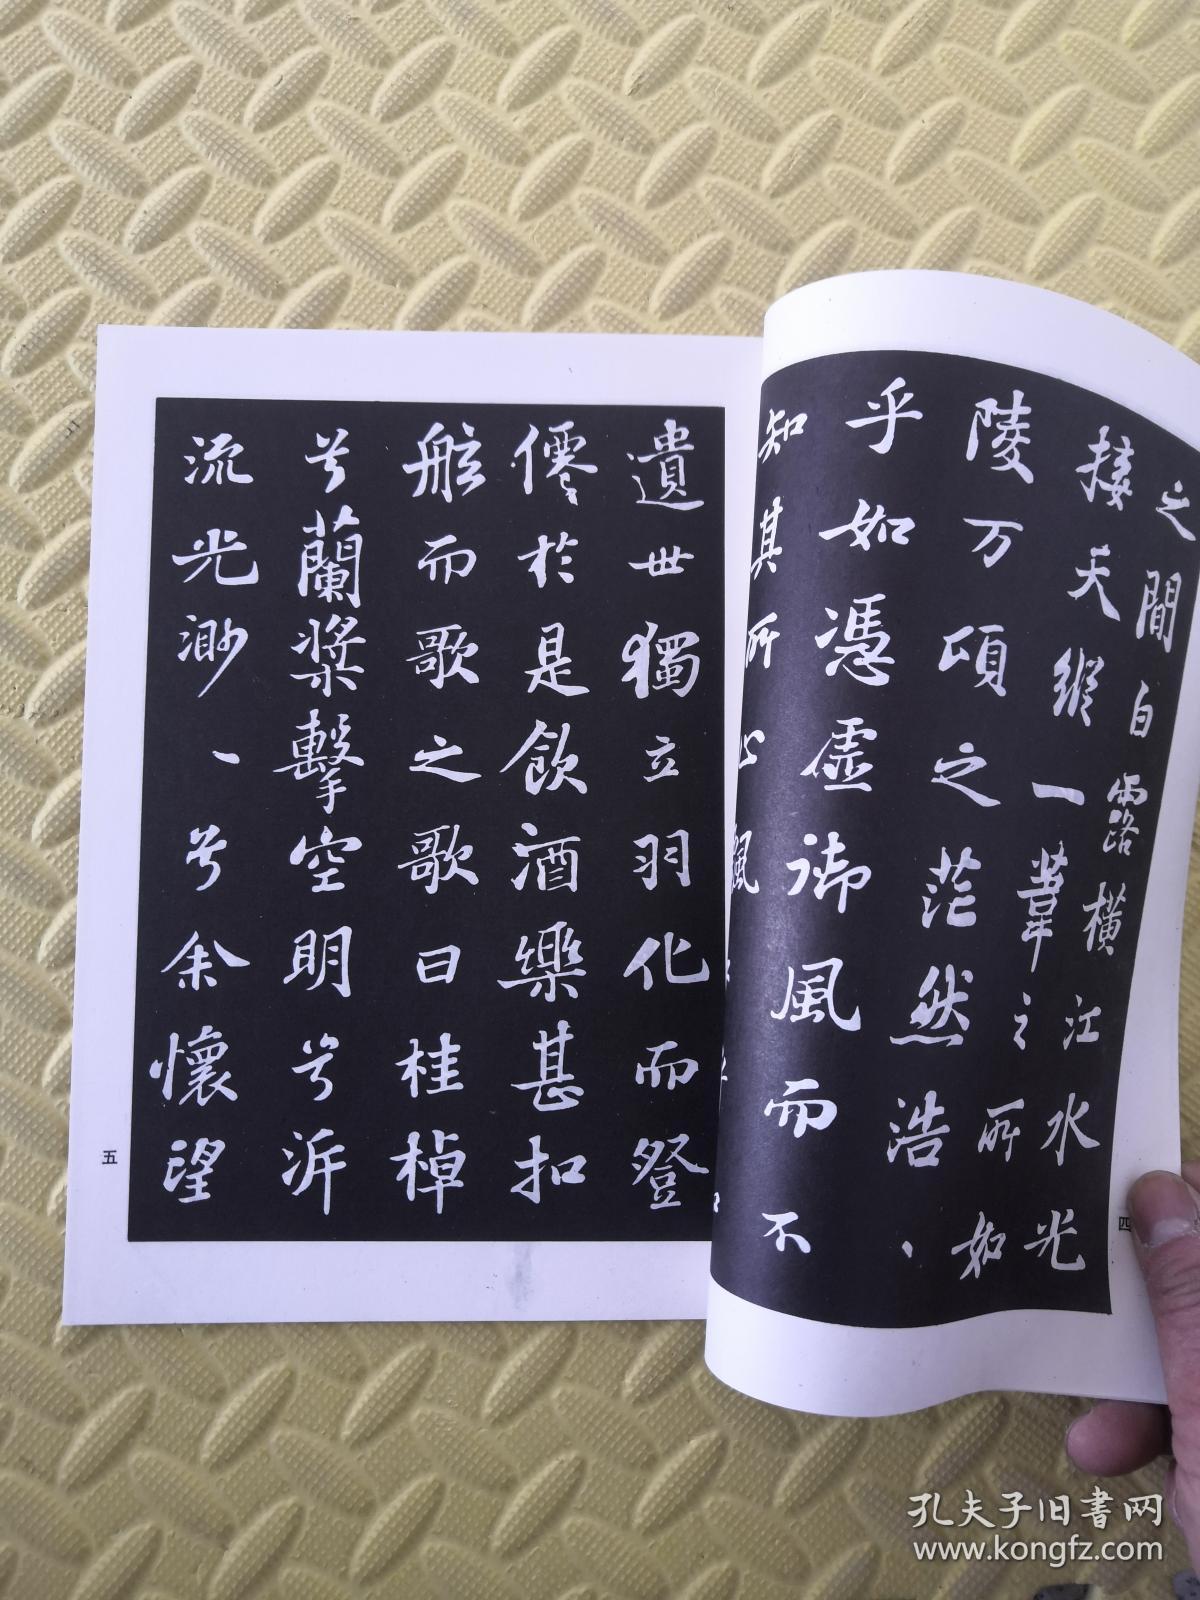 之間白露橫江水光
接天縱一葦之所如
陵万頃之茫然浩丶
乎如馮虛御風而不
知其所止飄
四
遺世獨立羽化而登
僊於是飲酒樂甚扣
舷而歌之歌曰桂棹
兮蘭槳擊空明兮泝
流光渺丶兮余懷望
五
孔夫子旧书网
www.kongfz.com